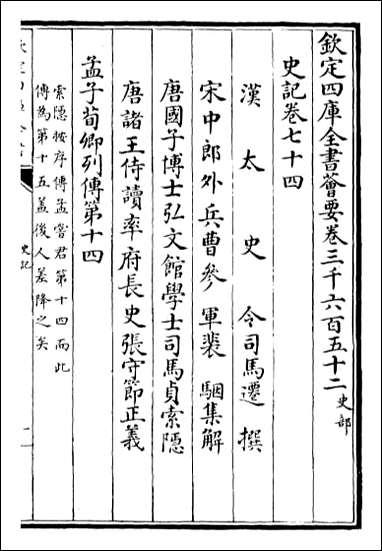 欽定四庫全書薈要卷三千六百五十二 史部
史記卷七十四
漢太史令司馬遷撰
宋中郎外兵曹參軍裴駰集解
唐國子博士弘文館學士司馬貞索隱
唐諸王侍讀率府長史張守節正義
孟子荀卿列傳第十四
索隱按序傳孟嘗君第十四而此
傳為第十五蓋後人差降之矣
史記